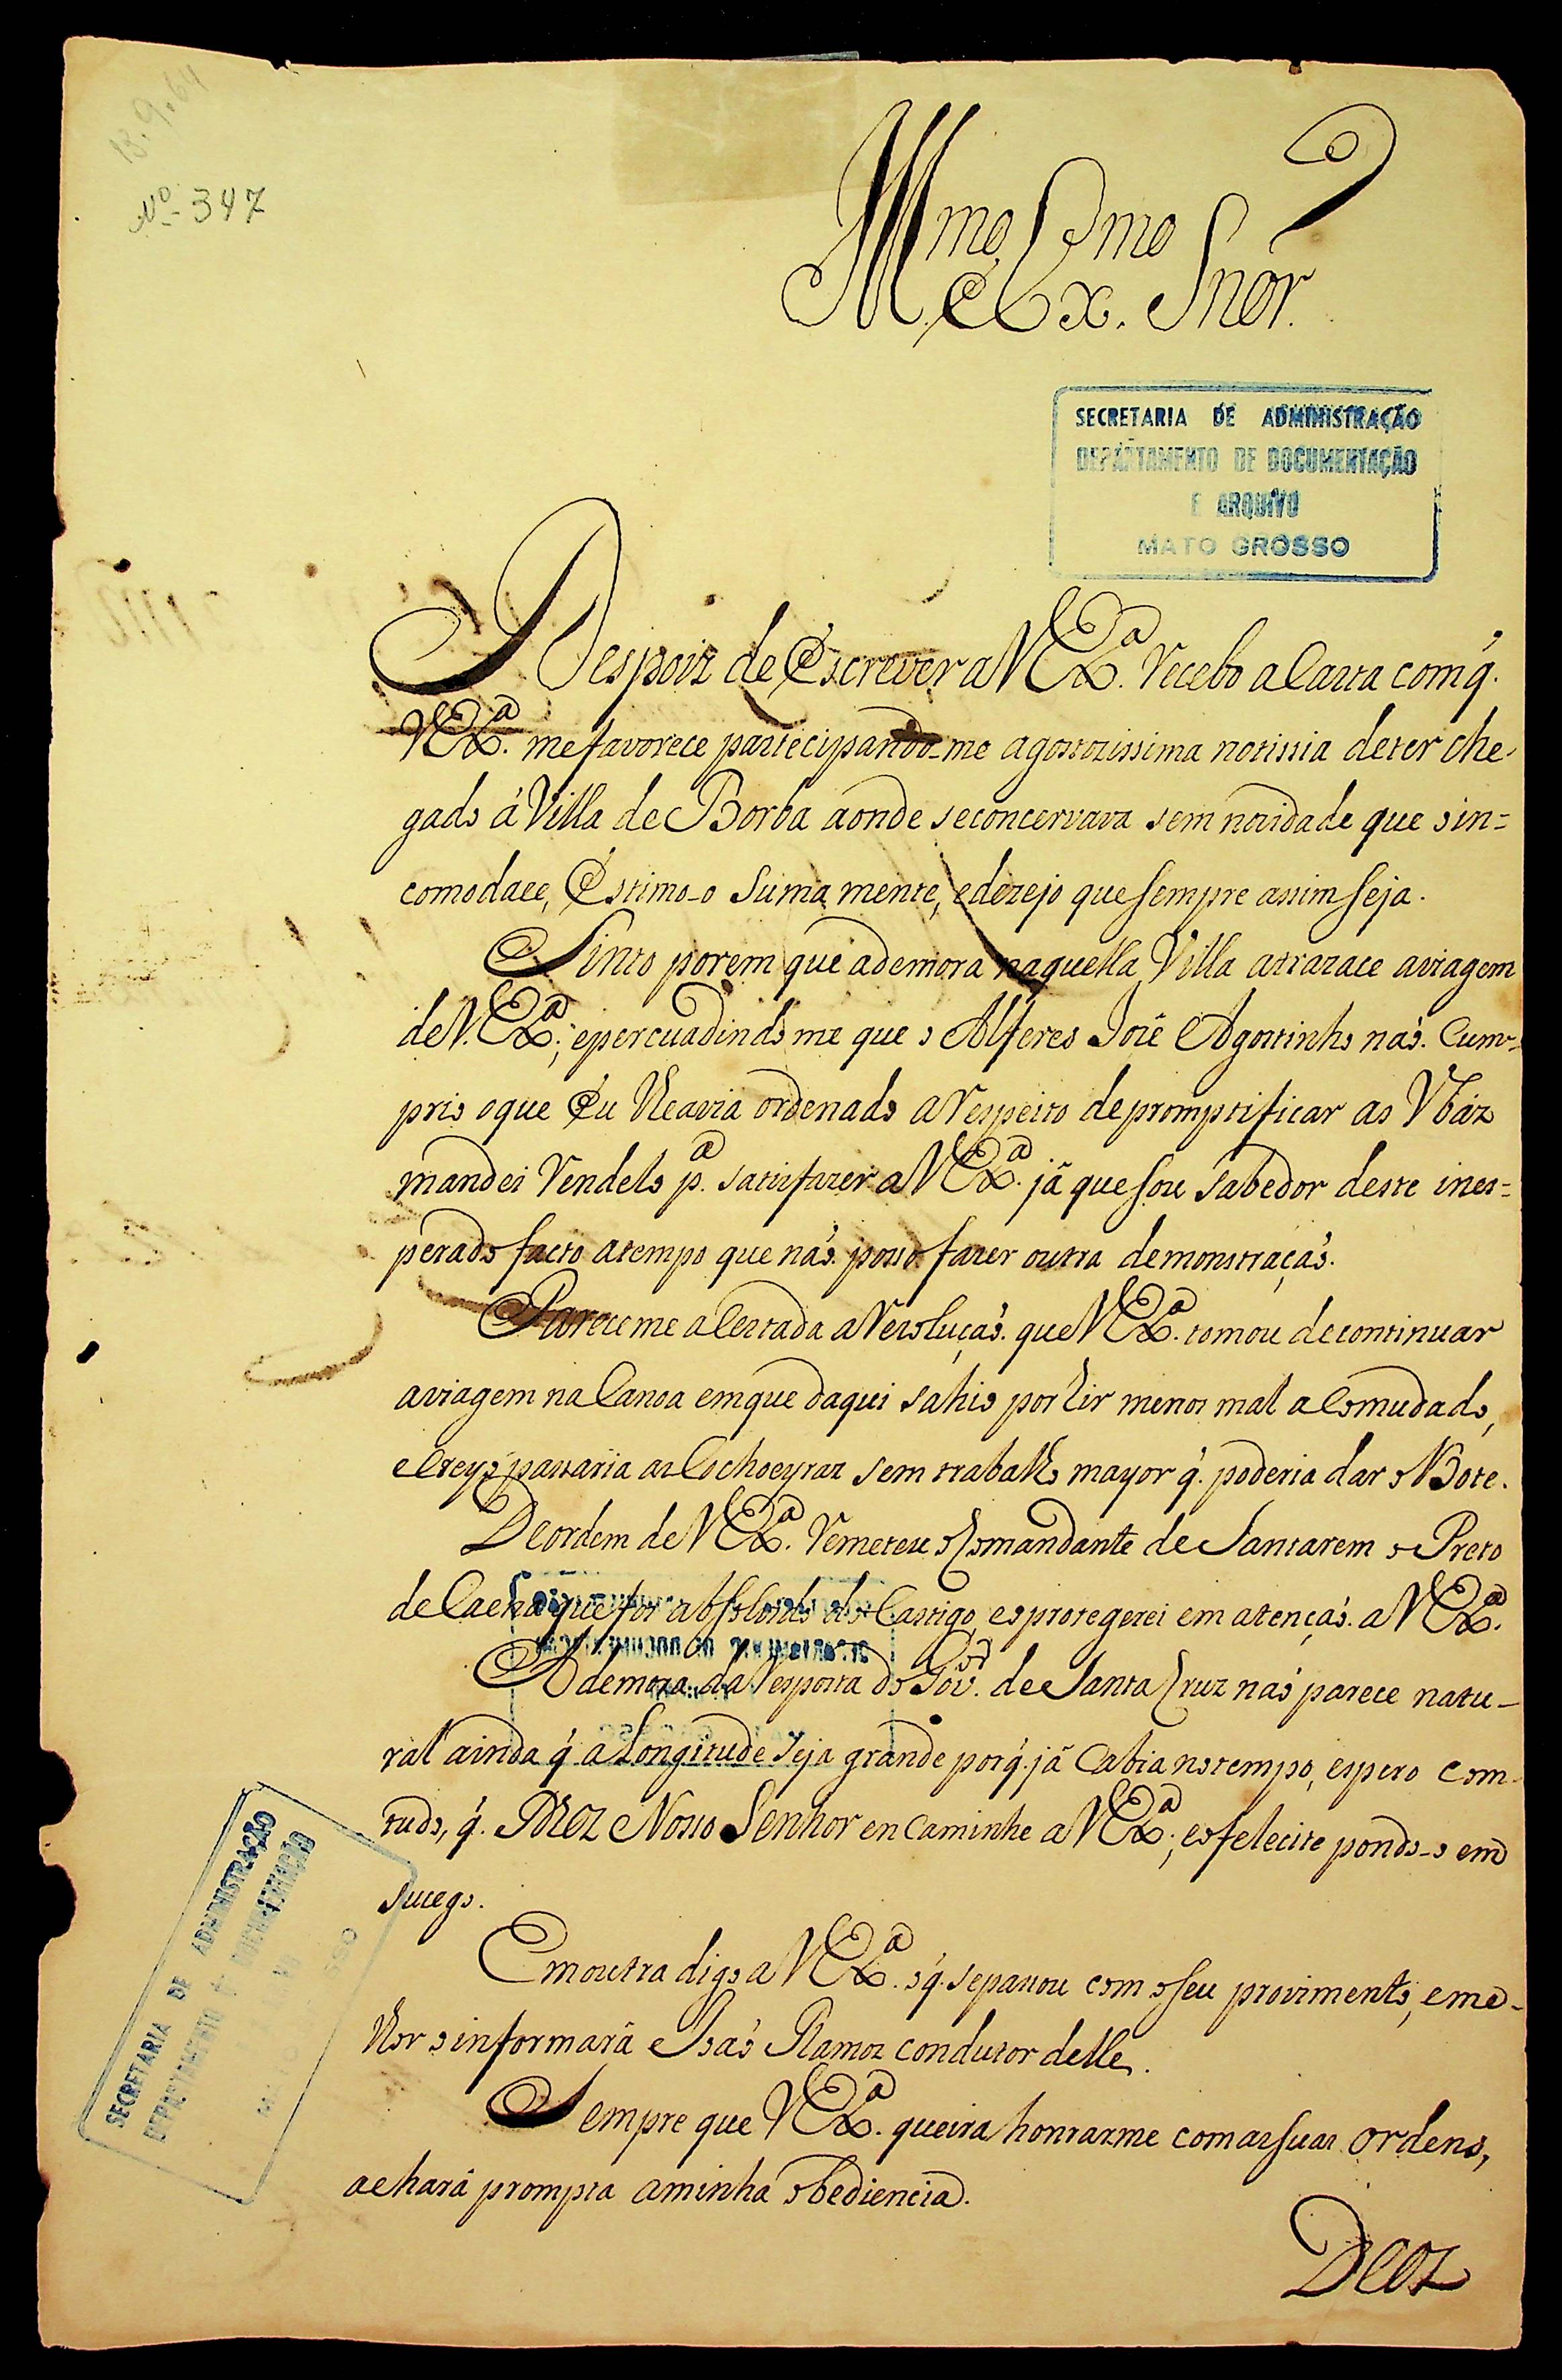 13.9.64
Nº 347
Illmo e Exmo Snor.
SECRETARIA DE ADMINISTRAÇÃO
DEPARTAMENTO DE DOCUMENTAÇÃO
E ARQUIVO
MATO GROSSO
Despoiz de Escrever a VExª. recebo a Carta com q́.
VExª. me favorece partecipando-me a gostozissima notissia de ter che-
gado á Villa de Borba aonde se concervava sem novidade que o in=
comodace, Estimo-o Suma mente, e dezejo que sempre assim seja.
Sinto porem que a demora naquella Villa atrazace a viagem
de V.Exª.; e percuadindo me que o Alferes Jozé Agostinho naó. Cum-
prio o que Eu lhe avia ordenado a respeito de promptificar as
mandei rendelo pª. satisfazer a VExª. já que sou Sabedor deste ines=
perado facto a tempo que naó. posso fazer outra demonstraçaó.
Parece me aCertada a rezoluçaó. que VExª. tomou de continuar
a viagem na Canoa em que daqui sahio por hir menos mal aComudado,
e Creyo passaria as Cochoeyras sem trabalho mayor q́. poderia dar o Bote.
De ordem de VExª. remeteu o Comandante de Santarem o Preto
de Caena que foi absoloto do Castigo, e o protegerei em atençaó. a VExª.
A demora da resposta do Govor. de Santa Cruz naó parece natu-
ral ainda q́ a Longitude seja grande porq́. já Cabia no tempo, espero com-
tudo, q́. Deos Nosso Senhor encaminhe a VExª., e o felecite pondo-o em
sucego.
Em outra digo a VExª. o q́. se passou com o seu provimento, e me-
lhor o informará Joaó Ramos condutor delle.
Sempre que VExª. queira honrarme com as suas ordens,
achará prompta a minha obediencia.
Deos
SECRETARIA DE ADMINISTRAÇÃO
DEPARTAMENTO DE DOCUMENTAÇÃO